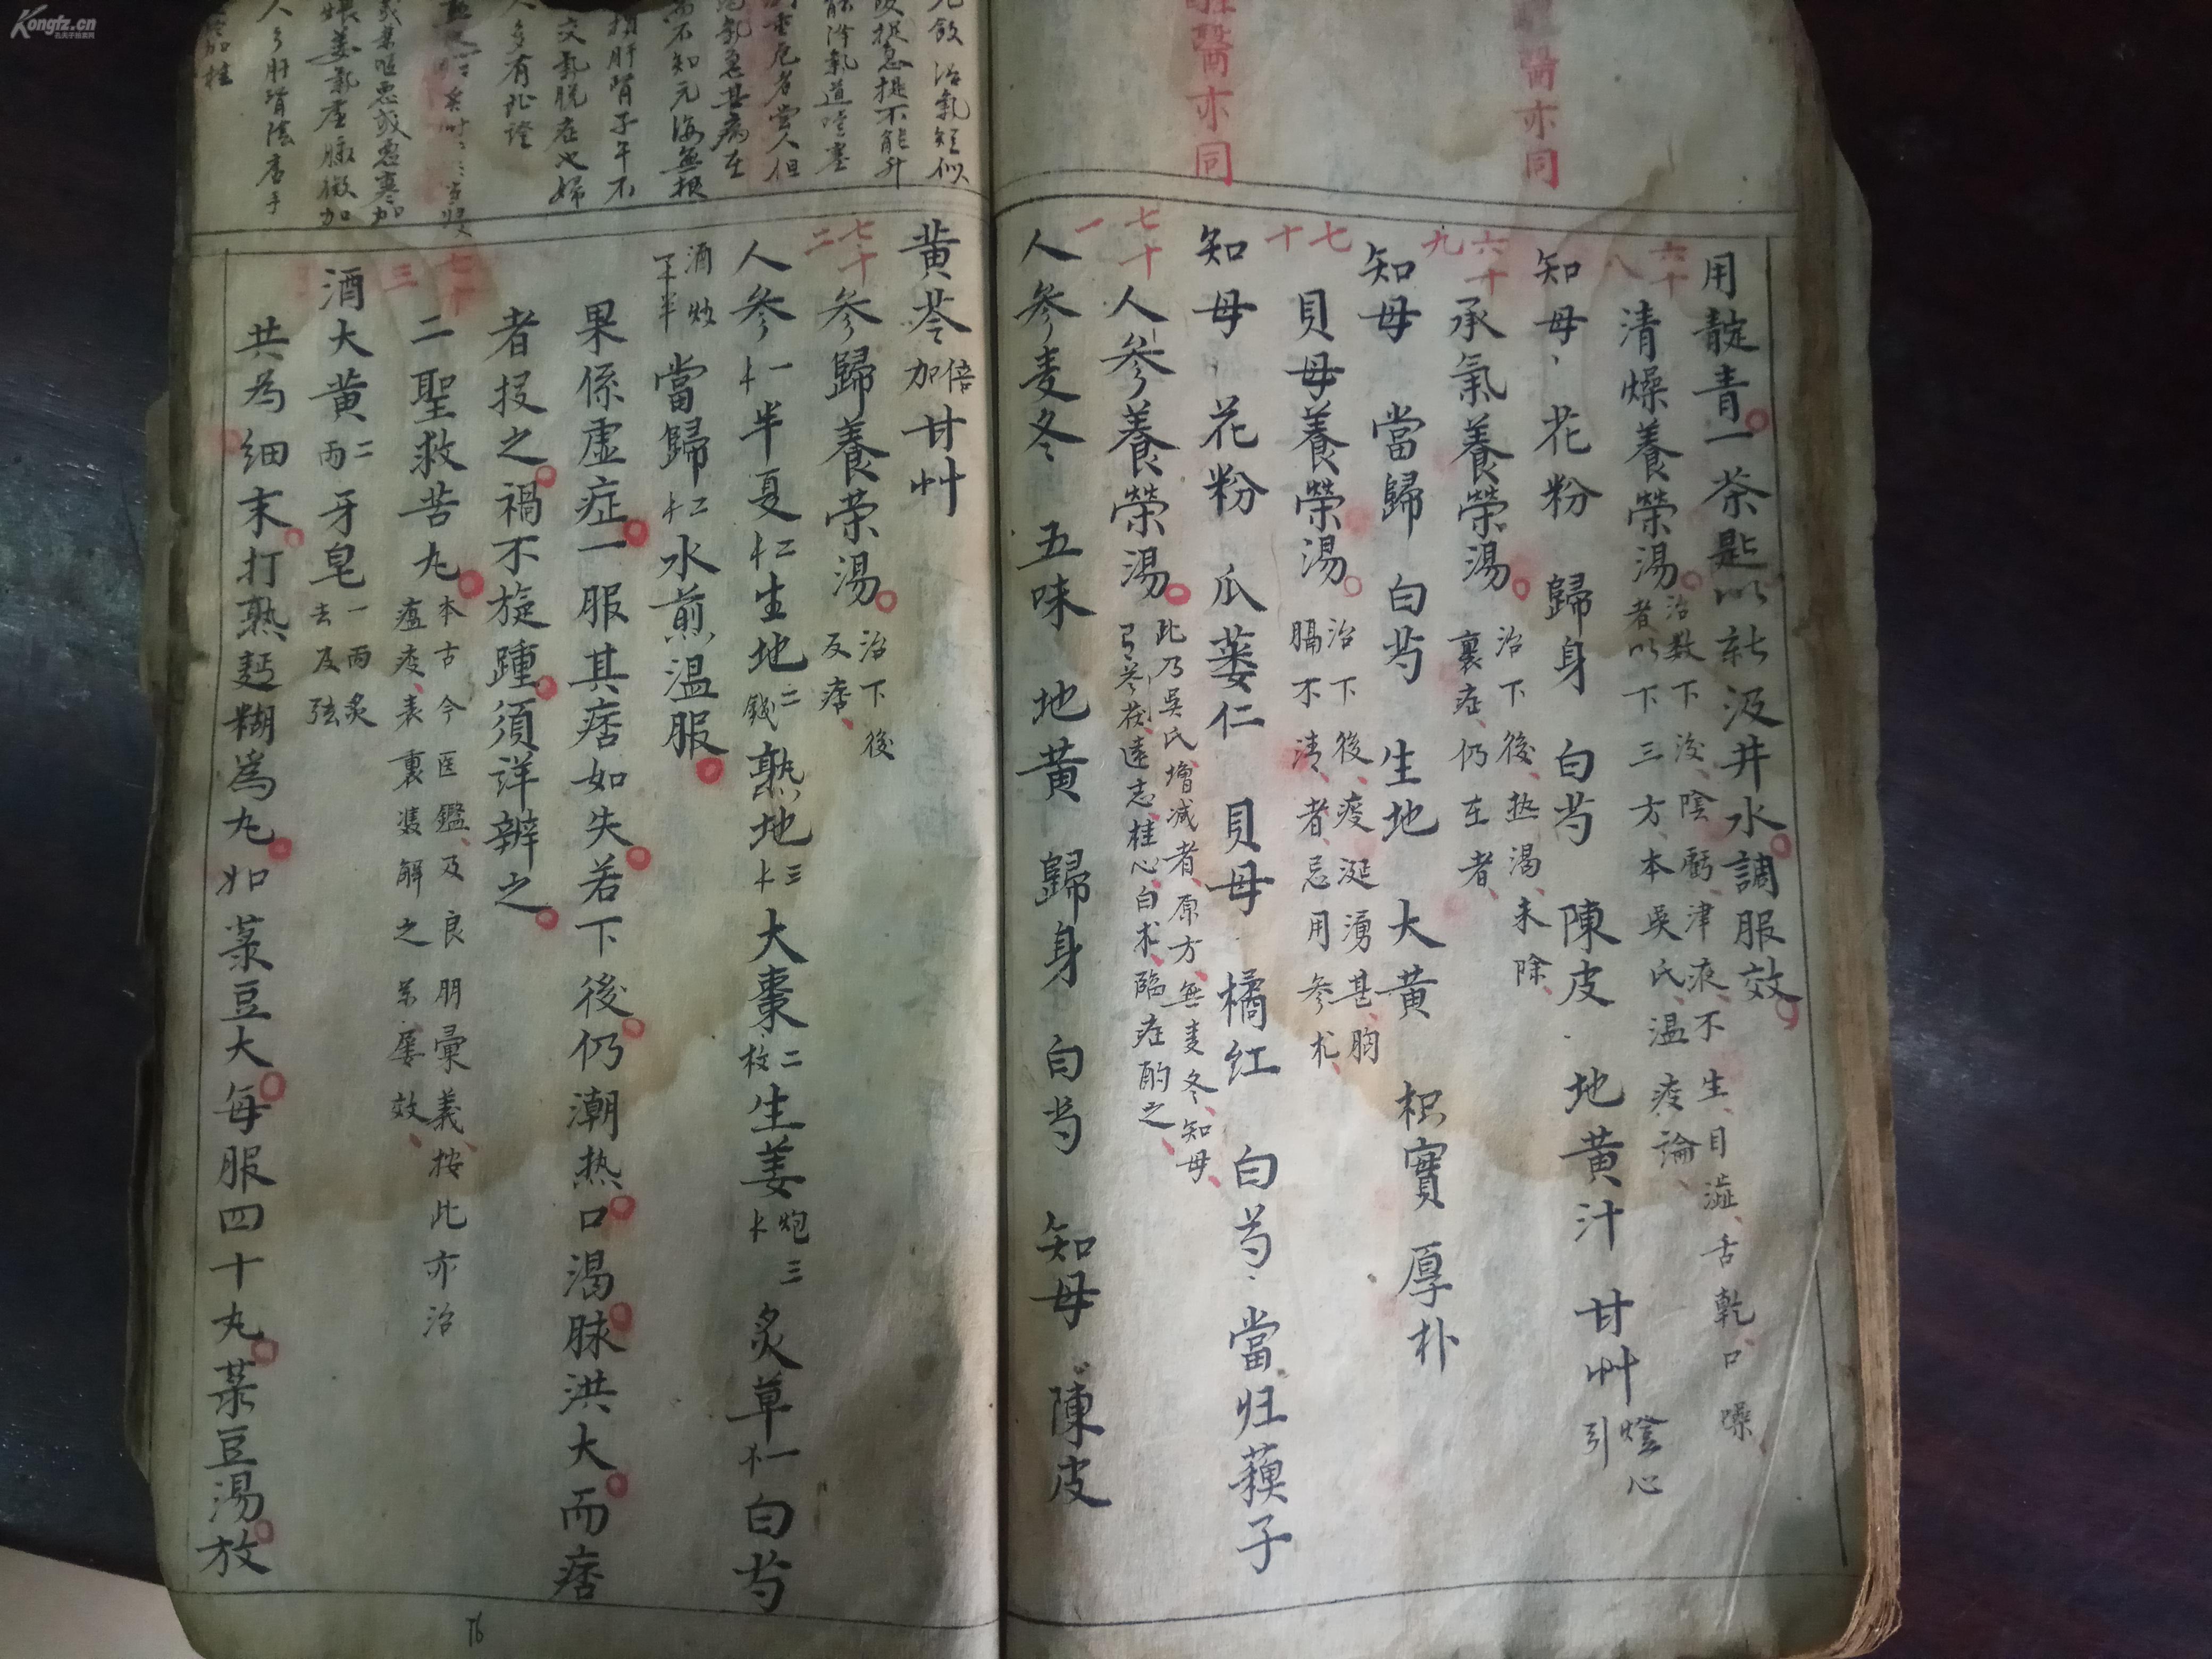 Kongfz.cn
醫亦同
醫亦同
用靛青一茶匙以新汲井水調服效
六十八
清燥養榮湯
治数下後、陰虧、津液、不生、目澁、舌乾、口噪
者以下三方、本吳氏、温疫論、
知母、花粉 歸身 白芍 陳皮 地黃汁 甘艸
燈心
引
六十九
承氣養榮湯
治下後、热渴、未除、
裏症、仍在者、
知母 當歸 白芍 生地 大黃 枳實 厚朴
七十
貝母養榮湯
治下後、疫涎湧甚、胸
膈不清、者、忌用參朮、
知母 花粉 瓜蒌仁 貝母 橘红 白芍、當归 蘓子
七十一
人參養榮湯
此乃吳氏、增减者、原方、無麦冬、知母、
芎、茯、遠志、桂心、白朮、臨症酌之、
人參麦冬 五味 地黄 歸身 白芍 知母 陳皮
黄芩
倍
加
甘艸
七十二
參歸養荣湯
治下後
反痞、
人參一半夏二生地
二
錢
熟地三大棗
二
枚
生姜
炮三
炙草一白芍
酒炒
半
當歸二水煎温服
果係虚症一服其痞如失若下後仍潮热口渴脉洪大而痞
者投之禍不旋踵須详辨之
七十三
二聖救苦丸
本古今医鑑、及良朋彙義、按此亦治
瘟疫、表裏雙解之、屡效、
酒大黄
二
両
牙皂
一両炙
去及弦
共为细末打熟麪糊爲丸如菉豆大每服四十丸菉豆湯放
飲 治氣短似
提急提不能升
冷氣道噎塞
重危者尝人但
氣急其病在
不知元海無根
損肝腎子午不
交氣脱症也婦
人多有此證
惡或惡寒加
煨姜氣虚脉微加
人多肝腎陰虚手
加桂
76